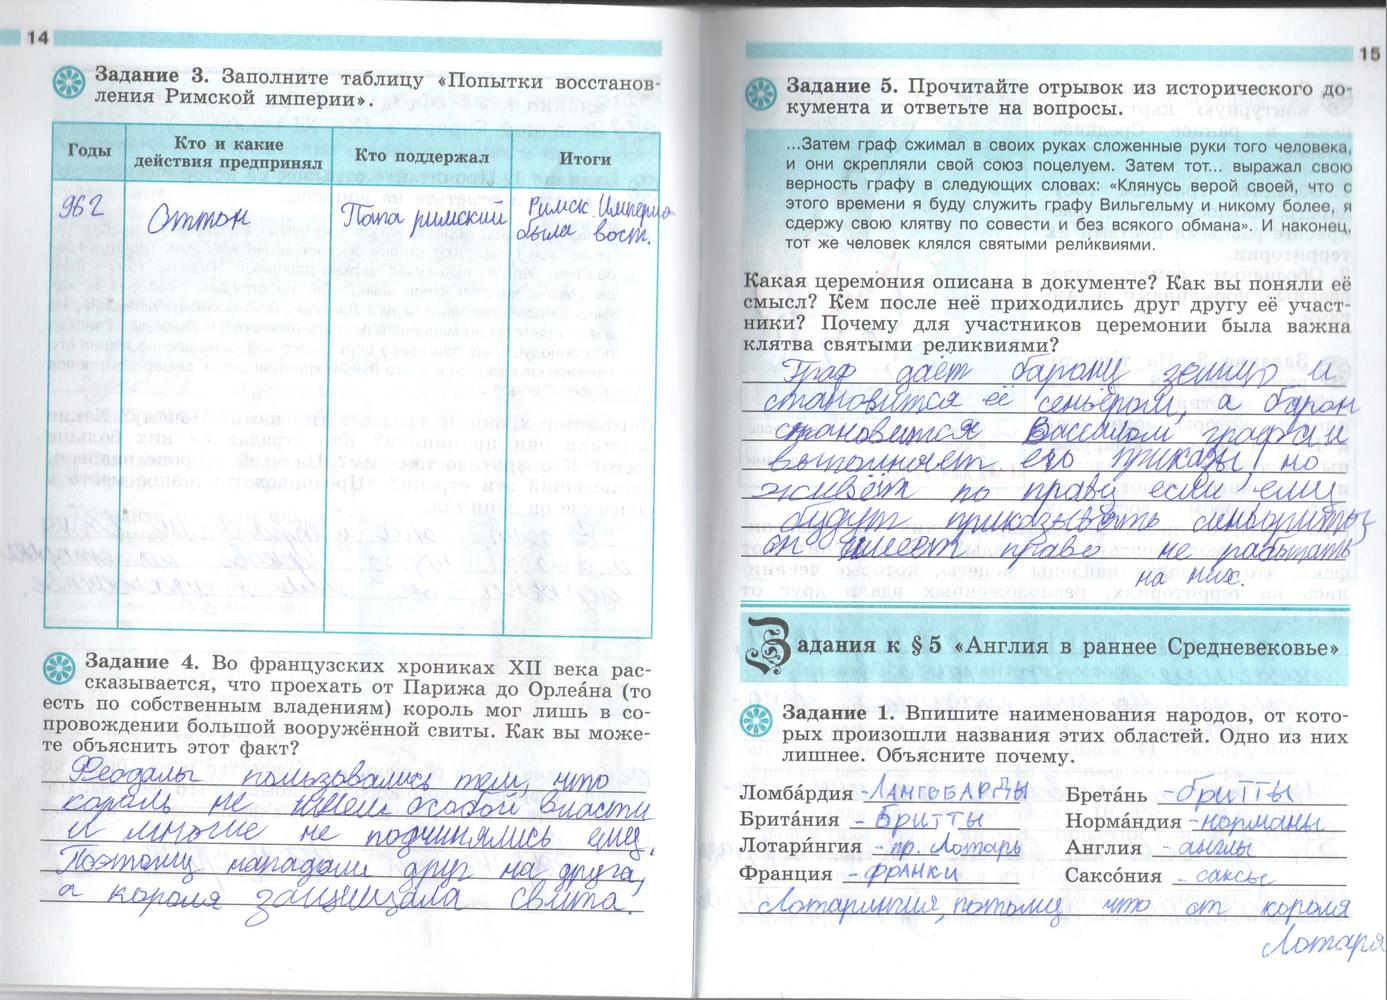 14
Задание 3. Заполните таблицу «Попытки восстанов-
ления Римской империи».
Годы
Кто и какие
действия предпринял
Кто поддержал
Итоги
962
Оттон
Папа римский
Римск. Империя
была вост.
Задание 4. Во французских хрониках XII века рас-
сказывается, что проехать от Парижа до Орлеа́на (то
есть по собственным владениям) король мог лишь в со-
провождении большой вооружённой свиты. Как вы може-
те объяснить этот факт?
Феодалы пользовались тем, что
король не имел особой власти
и многие не подчинялись ему.
Поэтому нападали друг на друга,
а короля защищала свита.
15
Задание 5. Прочитайте отрывок из исторического до-
кумента и ответьте на вопросы.
...Затем граф сжимал в своих руках сложенные руки того человека,
и они скрепляли свой союз поцелуем. Затем тот... выражал свою
верность графу в следующих словах: «Клянусь верой своей, что с
этого времени я буду служить графу Вильгельму и никому более, я
сдержу свою клятву по совести и без всякого обмана». И наконец,
тот же человек клялся святыми рели́квиями.
Какая церемония описана в документе? Как вы поняли её
смысл? Кем после неё приходились друг другу её участ-
ники? Почему для участников церемонии была важна
клятва святыми реликвиями?
Граф даёт барону землю и
становится её сеньёром, а барон
становится Вассалом графа и
выполняет его приказы, но
живёт по праву если ему
будут приказывать сеньориты
он имеет право не работать
на них.
Задания к § 5 «Англия в раннее Средневековье»
Задание 1. Впишите наименования народов, от кото-
рых произошли названия этих областей. Одно из них
лишнее. Объясните почему.
Ломба́рдия - ЛАНГОБАРДЫ
Брита́ния - БРИТТЫ
Лотари́нгия - пр. Лотарь
Франция - ФРАНКИ
Брета́нь - БРИТТЫ
Норма́ндия - норманы
Англия - англы
Саксо́ния - саксы
Лотарингия, потому что от короля
Лотаря